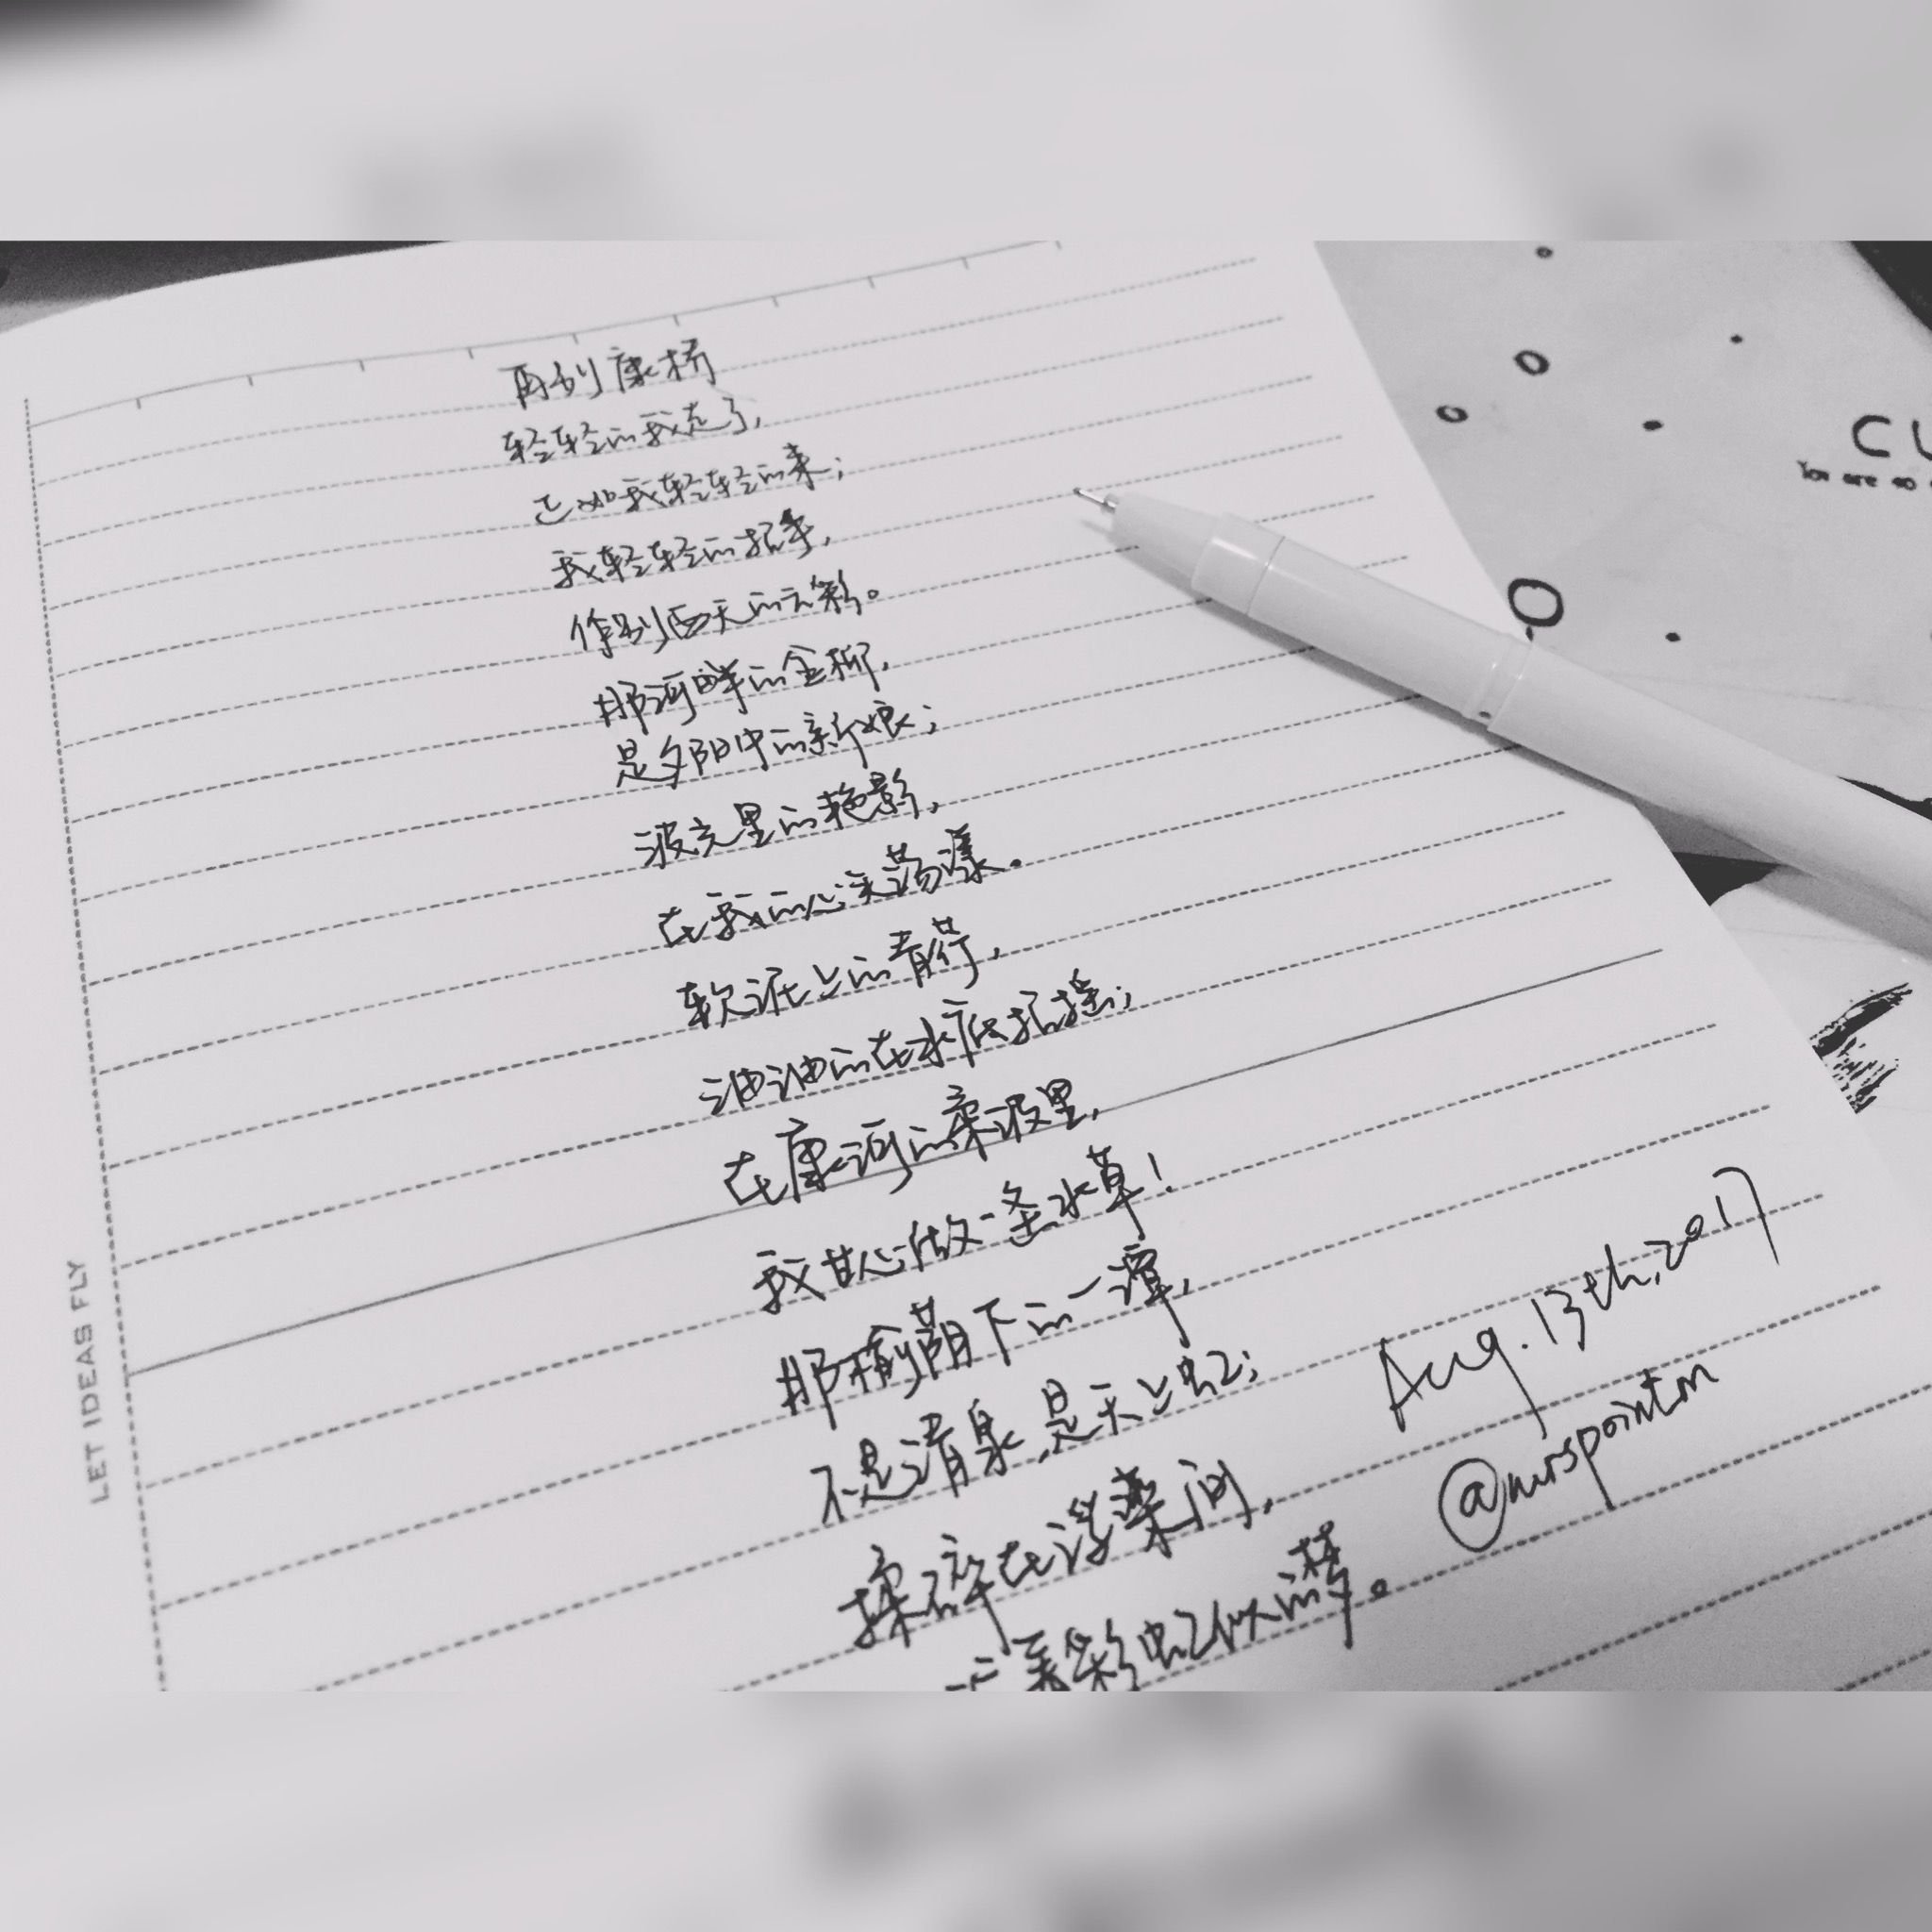 再别康桥
轻轻的我走了，
正如我轻轻的来；
我轻轻的招手，
作别西天的云彩。
那河畔的金柳，
是夕阳中的新娘；
波光里的艳影，
在我的心头荡漾。
软泥上的青荇，
油油的在水底招摇；
在康河的柔波里，
我甘心做一条水草！
那榆荫下的一潭，
不是清泉，是天上虹；
揉碎在浮藻间，
沉淀着彩虹似的梦。
Aug. 13th, 2017
@mrspointm
LET IDEAS FLY
CU
You are so